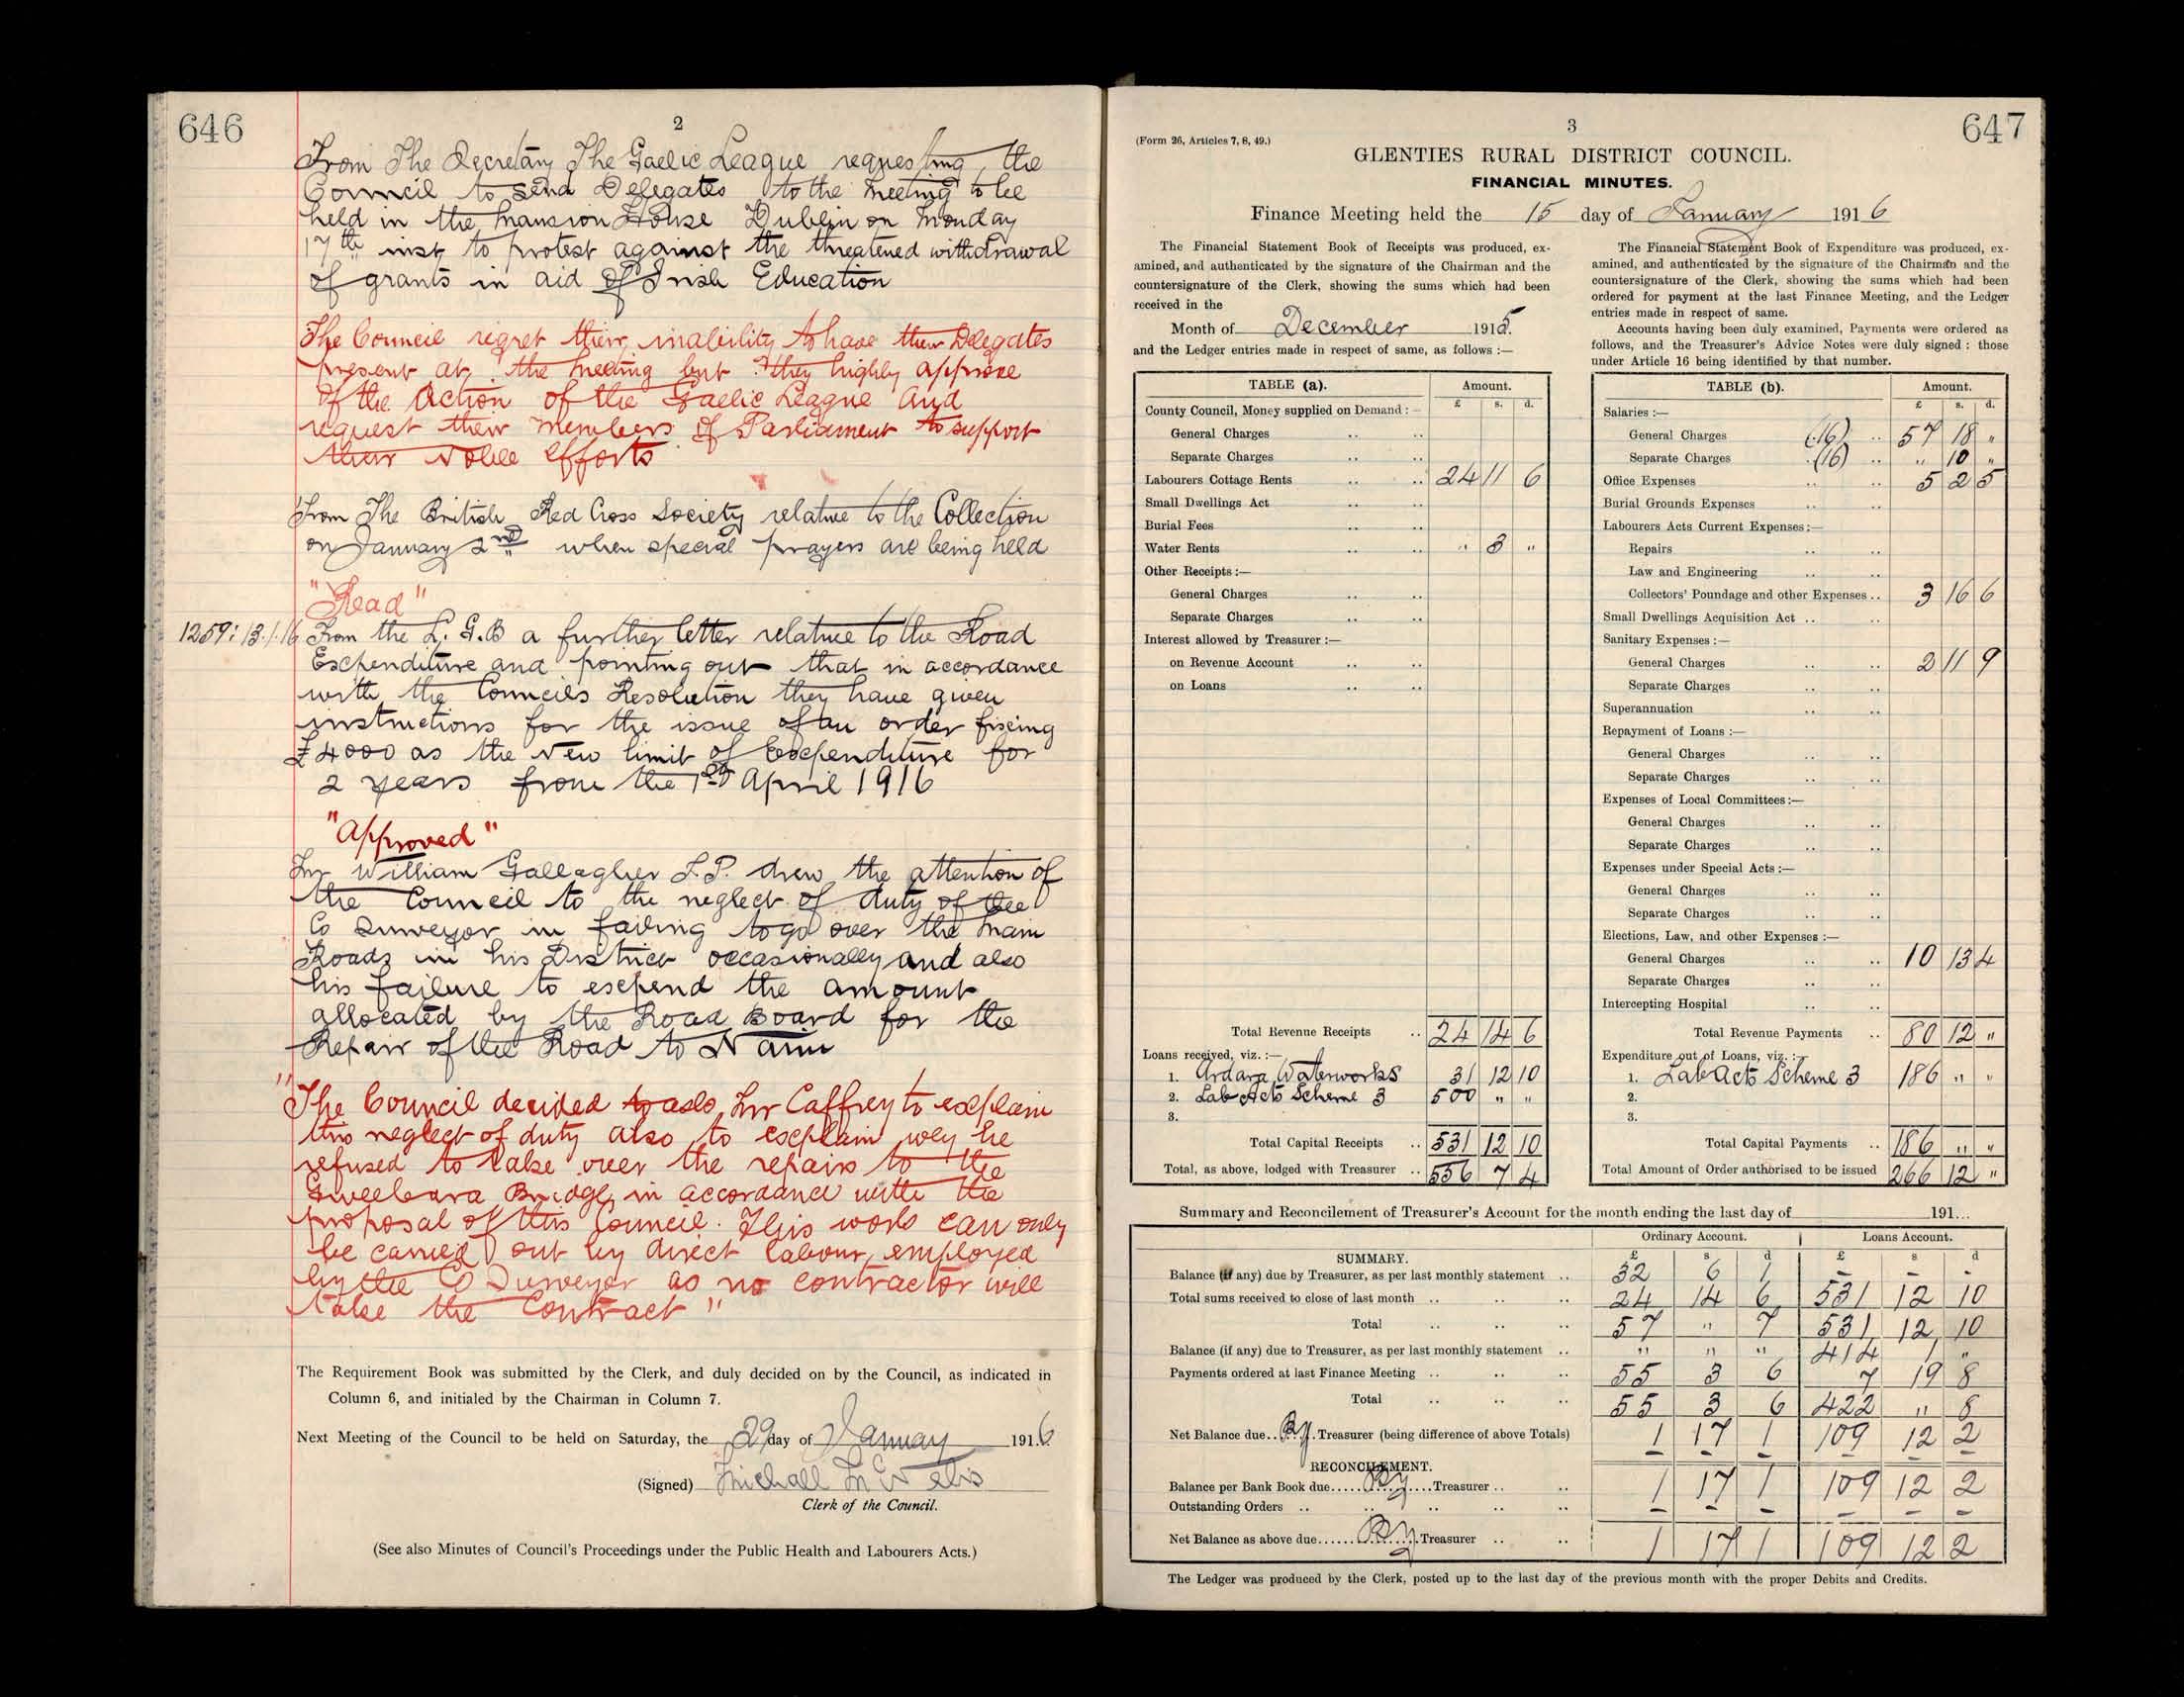 646
2
From The Secretary The Gaelic League requesting the
Council to send Delegates to the Meeting to be
held in the Mansion House Dublin on Monday
17th inst to protest against the threatened withdrawal
of grants in aid of Irish Education
The Council regret their inability to have their Delegates
present at the Meeting but they highly approve
of the Action of the Gaelic League and
request their Members of Parliament to support
their Noble efforts
From The British Red Cross Society relative to the Collection
on January 2nd when special prayers are being held
"Read"
1259: 13.1.16 From the L.G.B a further letter relative to the Road
Expenditure and pointing out that in accordance
with the Councils Resolution they have given
instructions for the issue of an order fixing
£4000 as the New limit of Expenditure for
2 years from the 1st April 1916
"Approved"
Mr William Gallagher J.P. drew the attention of
the Council to the neglect of duty of the
Co Surveyor in failing to go over the Main
Roads in his District occasionally and also
his failure to expend the amount
allocated by the Road Board for the
Repair of the Road to Narin
"The Council decided to ask Mr Caffrey to explain
this neglect of duty also to explain wey he
refused to take over the repairs to the
Gweebara Bridge in accordance with the
proposal of this Council. This work can only
be carried out by direct labour employed
by the Co Surveyor as no contractor will
take the Contract"
The Requirement Book was submitted by the Clerk, and duly decided on by the Council, as indicated in
Column 6, and initialed by the Chairman in Column 7.
Next Meeting of the Council to be held on Saturday, the 29 day of January 1916
(Signed) Michall McNelis
Clerk of the Council.
(See also Minutes of Council's Proceedings under the Public Health and Labourers Acts.)
647
3
(Form 26, Articles 7, 8, 49.)
GLENTIES RURAL DISTRICT COUNCIL.
FINANCIAL MINUTES.
Finance Meeting held the 15 day of January 1916
The Financial Statement Book of Receipts was produced, ex-
amined, and authenticated by the signature of the Chairman and the
countersignature of the Clerk, showing the sums which had been
received in the
Month of December 1915.
and the Ledger entries made in respect of same, as follows :—
TABLE (a). Amount.
£ s. d.
County Council, Money supplied on Demand :—
General Charges .. ..
Separate Charges .. ..
Labourers Cottage Rents .. .. 24 11 6
Small Dwellings Act .. ..
Burial Fees .. ..
Water Rents .. .. " 3 "
Other Receipts :—
General Charges .. ..
Separate Charges .. ..
Interest allowed by Treasurer :—
on Revenue Account .. ..
on Loans .. ..
Total Revenue Receipts .. 24 14 6
Loans received, viz. :—
1. Ardara Waterworks 31 12 10
2. Lab Acts Scheme 3 500 " "
3.
Total Capital Receipts .. 531 12 10
Total, as above, lodged with Treasurer .. 556 7 4
The Financial Statement Book of Expenditure was produced, ex-
amined, and authenticated by the signature of the Chairman and the
countersignature of the Clerk, showing the sums which had been
ordered for payment at the last Finance Meeting, and the Ledger
entries made in respect of same.
Accounts having been duly examined, Payments were ordered as
follows, and the Treasurer's Advice Notes were duly signed : those
under Article 16 being identified by that number.
TABLE (b). Amount.
£ s. d.
Salaries :—
General Charges (16) .. 57 18 "
Separate Charges (16) .. " 10 "
Office Expenses .. .. 5 2 5
Burial Grounds Expenses .. ..
Labourers Acts Current Expenses :—
Repairs .. ..
Law and Engineering .. ..
Collectors' Poundage and other Expenses .. 3 16 6
Small Dwellings Acquisition Act .. ..
Sanitary Expenses :—
General Charges .. .. 2 11 9
Separate Charges .. ..
Superannuation .. ..
Repayment of Loans :—
General Charges .. ..
Separate Charges .. ..
Expenses of Local Committees :—
General Charges .. ..
Separate Charges .. ..
Expenses under Special Acts :—
General Charges .. ..
Separate Charges .. ..
Elections, Law, and other Expenses :—
General Charges .. .. 10 13 4
Separate Charges .. ..
Intercepting Hospital .. ..
Total Revenue Payments .. 80 12 "
Expenditure out of Loans, viz. :—
1. Lab Acts Scheme 3 186 " "
2.
3.
Total Capital Payments .. 186 " "
Total Amount of Order authorised to be issued 266 12 "
Summary and Reconcilement of Treasurer's Account for the month ending the last day of 191...
Ordinary Account. Loans Account.
£ s d £ s d
SUMMARY.
Balance (if any) due by Treasurer, as per last monthly statement .. 32 6 1 - - -
Total sums received to close of last month .. .. .. 24 14 6 531 12 10
Total .. .. .. 57 " 7 531 12 10
Balance (if any) due to Treasurer, as per last monthly statement .. " " " 414 1 "
Payments ordered at last Finance Meeting .. .. .. 55 3 6 7 19 8
Total .. .. .. 55 3 6 422 " 8
Net Balance due..By..Treasurer (being difference of above Totals) 1 17 1 109 12 2
RECONCILEMENT.
Balance per Bank Book due.....By....Treasurer .. .. 1 17 1 109 12 2
Outstanding Orders .. .. .. .. .. - - - - - -
Net Balance as above due......By..Treasurer .. .. 1 17 1 109 12 2
The Ledger was produced by the Clerk, posted up to the last day of the previous month with the proper Debits and Credits.